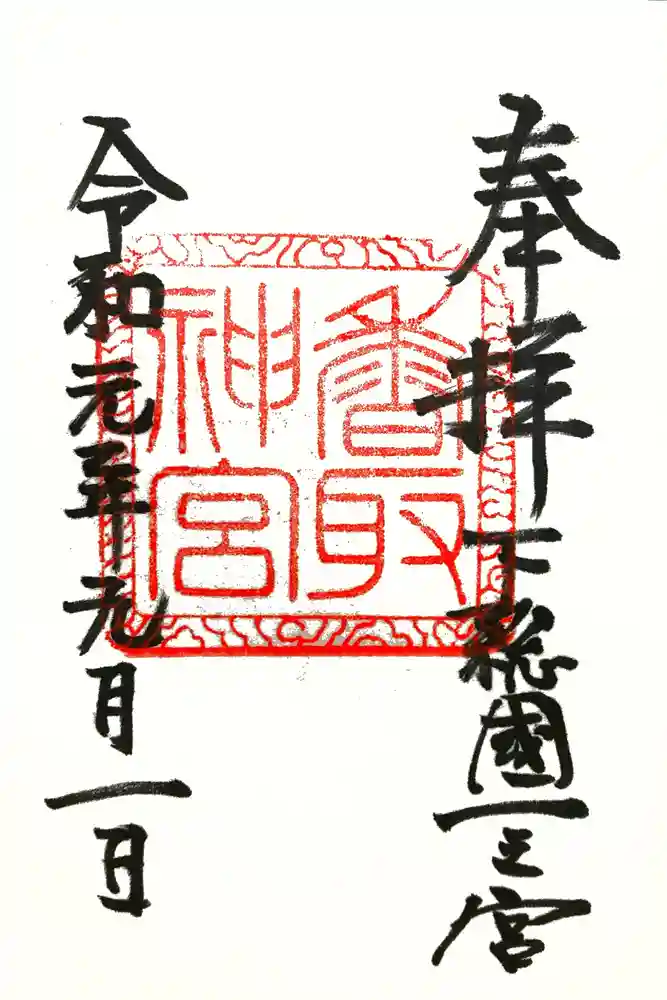 奉拝 下総國一之宮
香取
神宮
令和元年元月一日